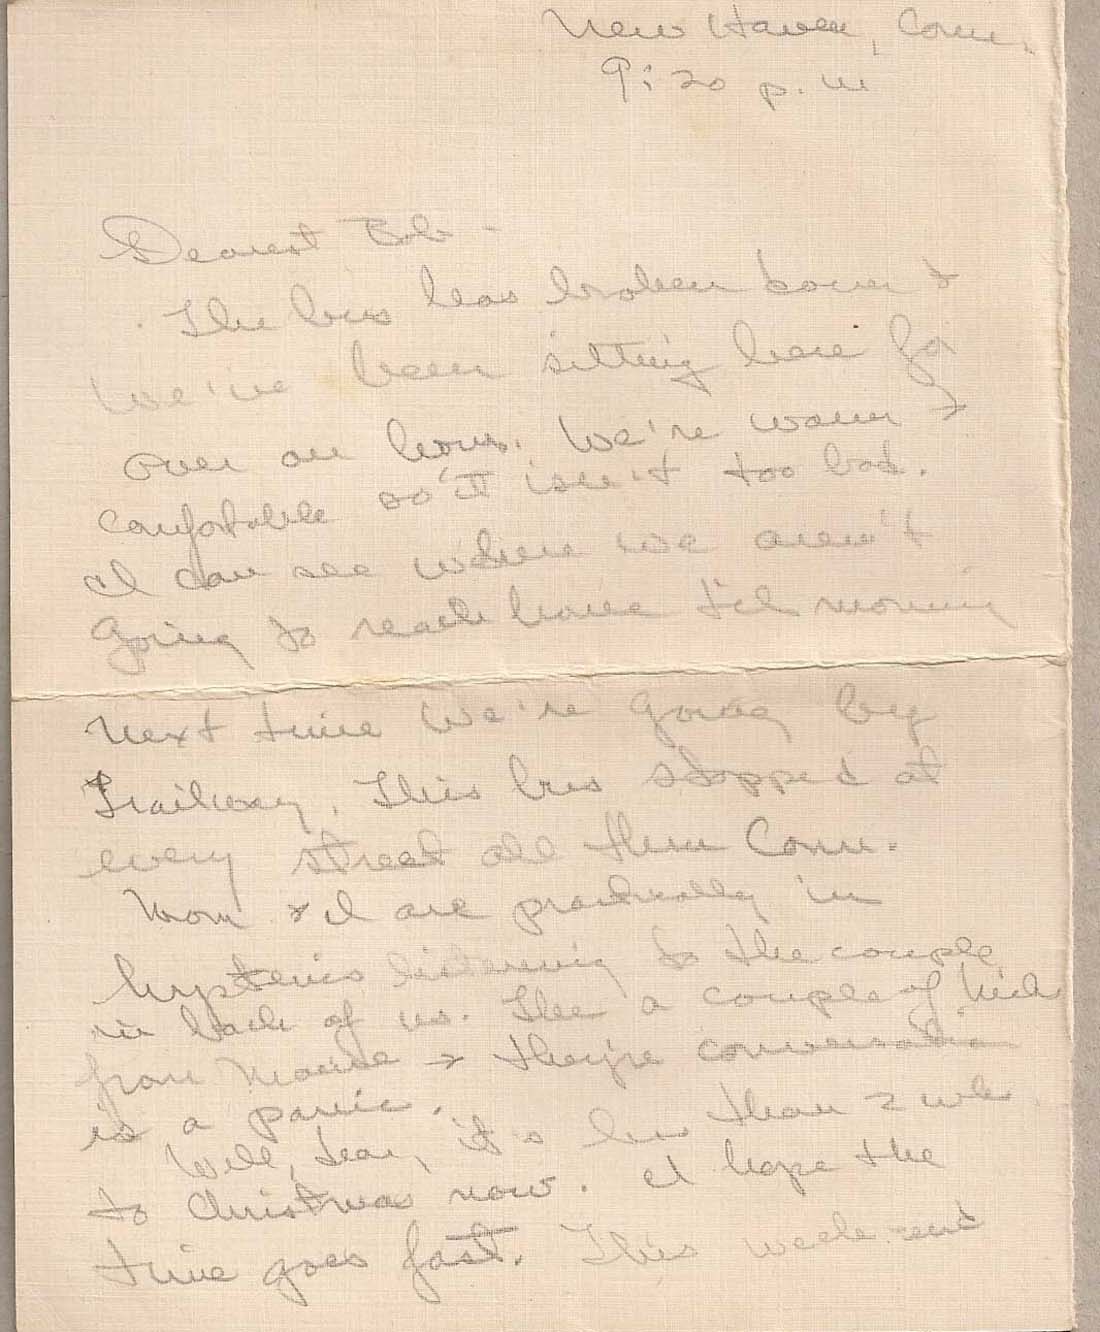 New Haven, Conn.
9:20 p.m
Dearest Bob -
The bus has broken down &
we've been sitting here for
over an hour. We're warm &
comfortable so it isn't too bad.
I can see where we aren't
going to reach home til morning
Next time we're going by
Trailway. This bus stopped at
every street all thru Conn.
Mom & I are practically in
hysterics listening to the couple
in back of us. The a couple of hicks
from Maine & they're conversation
is a panic.
Well, dear, it's less than 2 wks.
to Christmas now. I hope the
time goes fast. This week-end